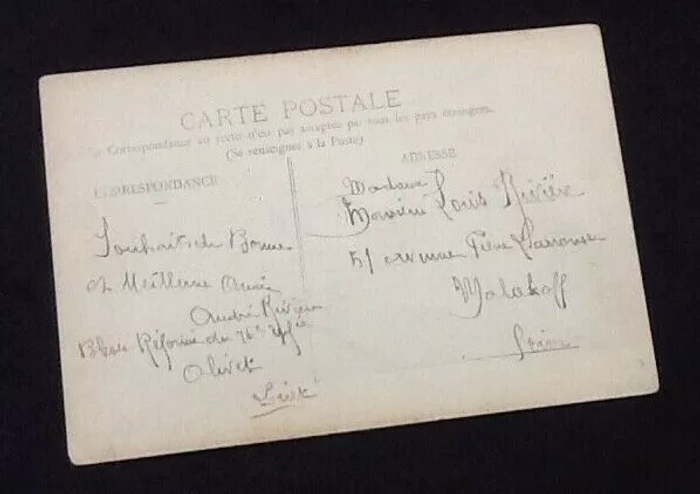 CARTE POSTALE
La Correspondance au recto n'est pas acceptée par tous les pays étrangers.
(Se renseigner à la Poste)
CORRESPONDANCE
Souhaits de Bonne
et Meilleure Année
André Rivière
Réformé du 76e
Olivet
Loiret
ADRESSE
Madame
Monsieur Louis Rivière
51 avenue Pierre Larousse
Malakoff
Seine